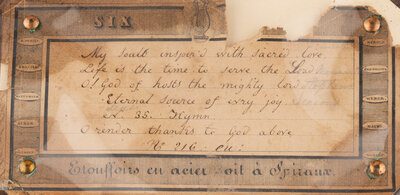 SIX
My soul inspir'd with sacred love
Life is the time to serve the Lord
O! God of hosts the mighty lord
Eternal source of evry joy
No. 35. Hymn
O render thanks to God above
No 216. cu:
Etouffoirs en acier soit à Spiraux.